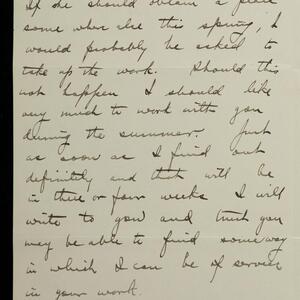 If he should obtain a place
some where else this spring, I
would probably be asked to
take up the work. Should this
not happen I should like
very much to work with you
during the summer. Just
as soon as I find out
definitely and that will be
in three or four weeks I will
write to you and trust you
may be able to find some way
in which I can be of service
in your work.